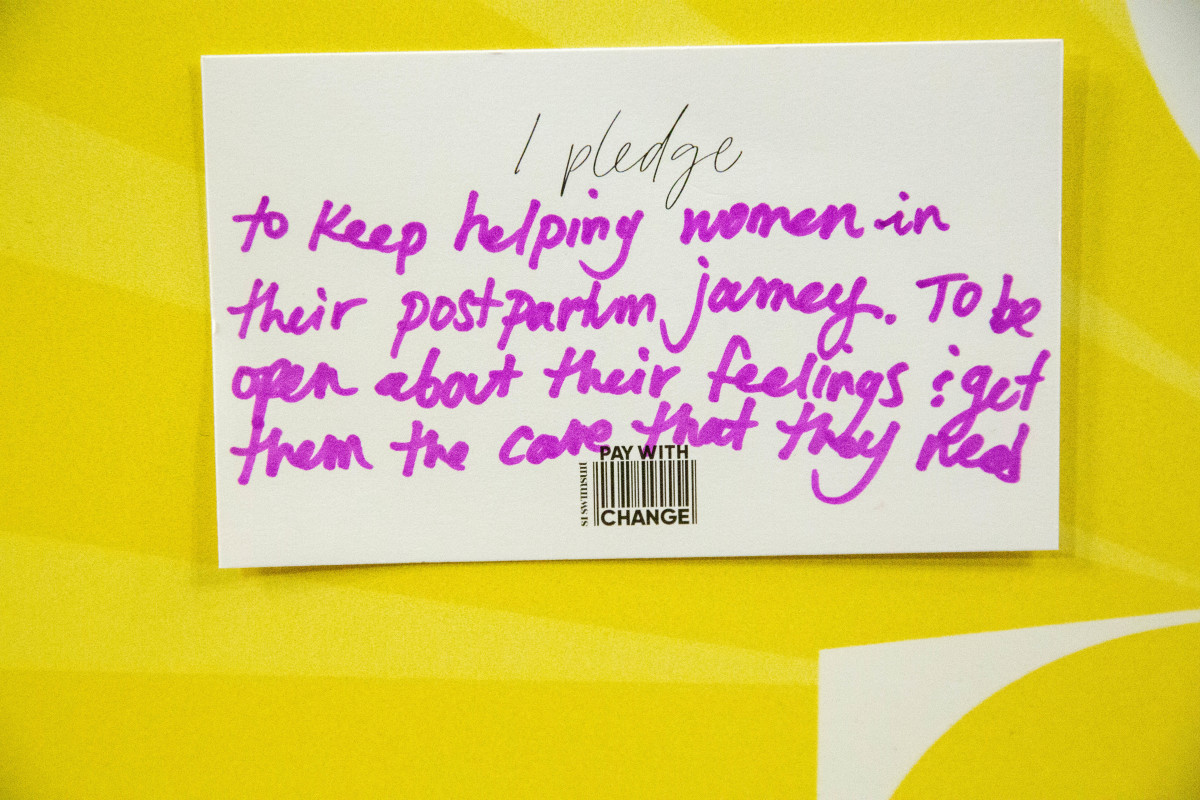 I pledge
to keep helping women in
their postpartum journey. To be
open about their feelings & get
them the care that they need
PAY WITH
SI SWIMSUIT
CHANGE